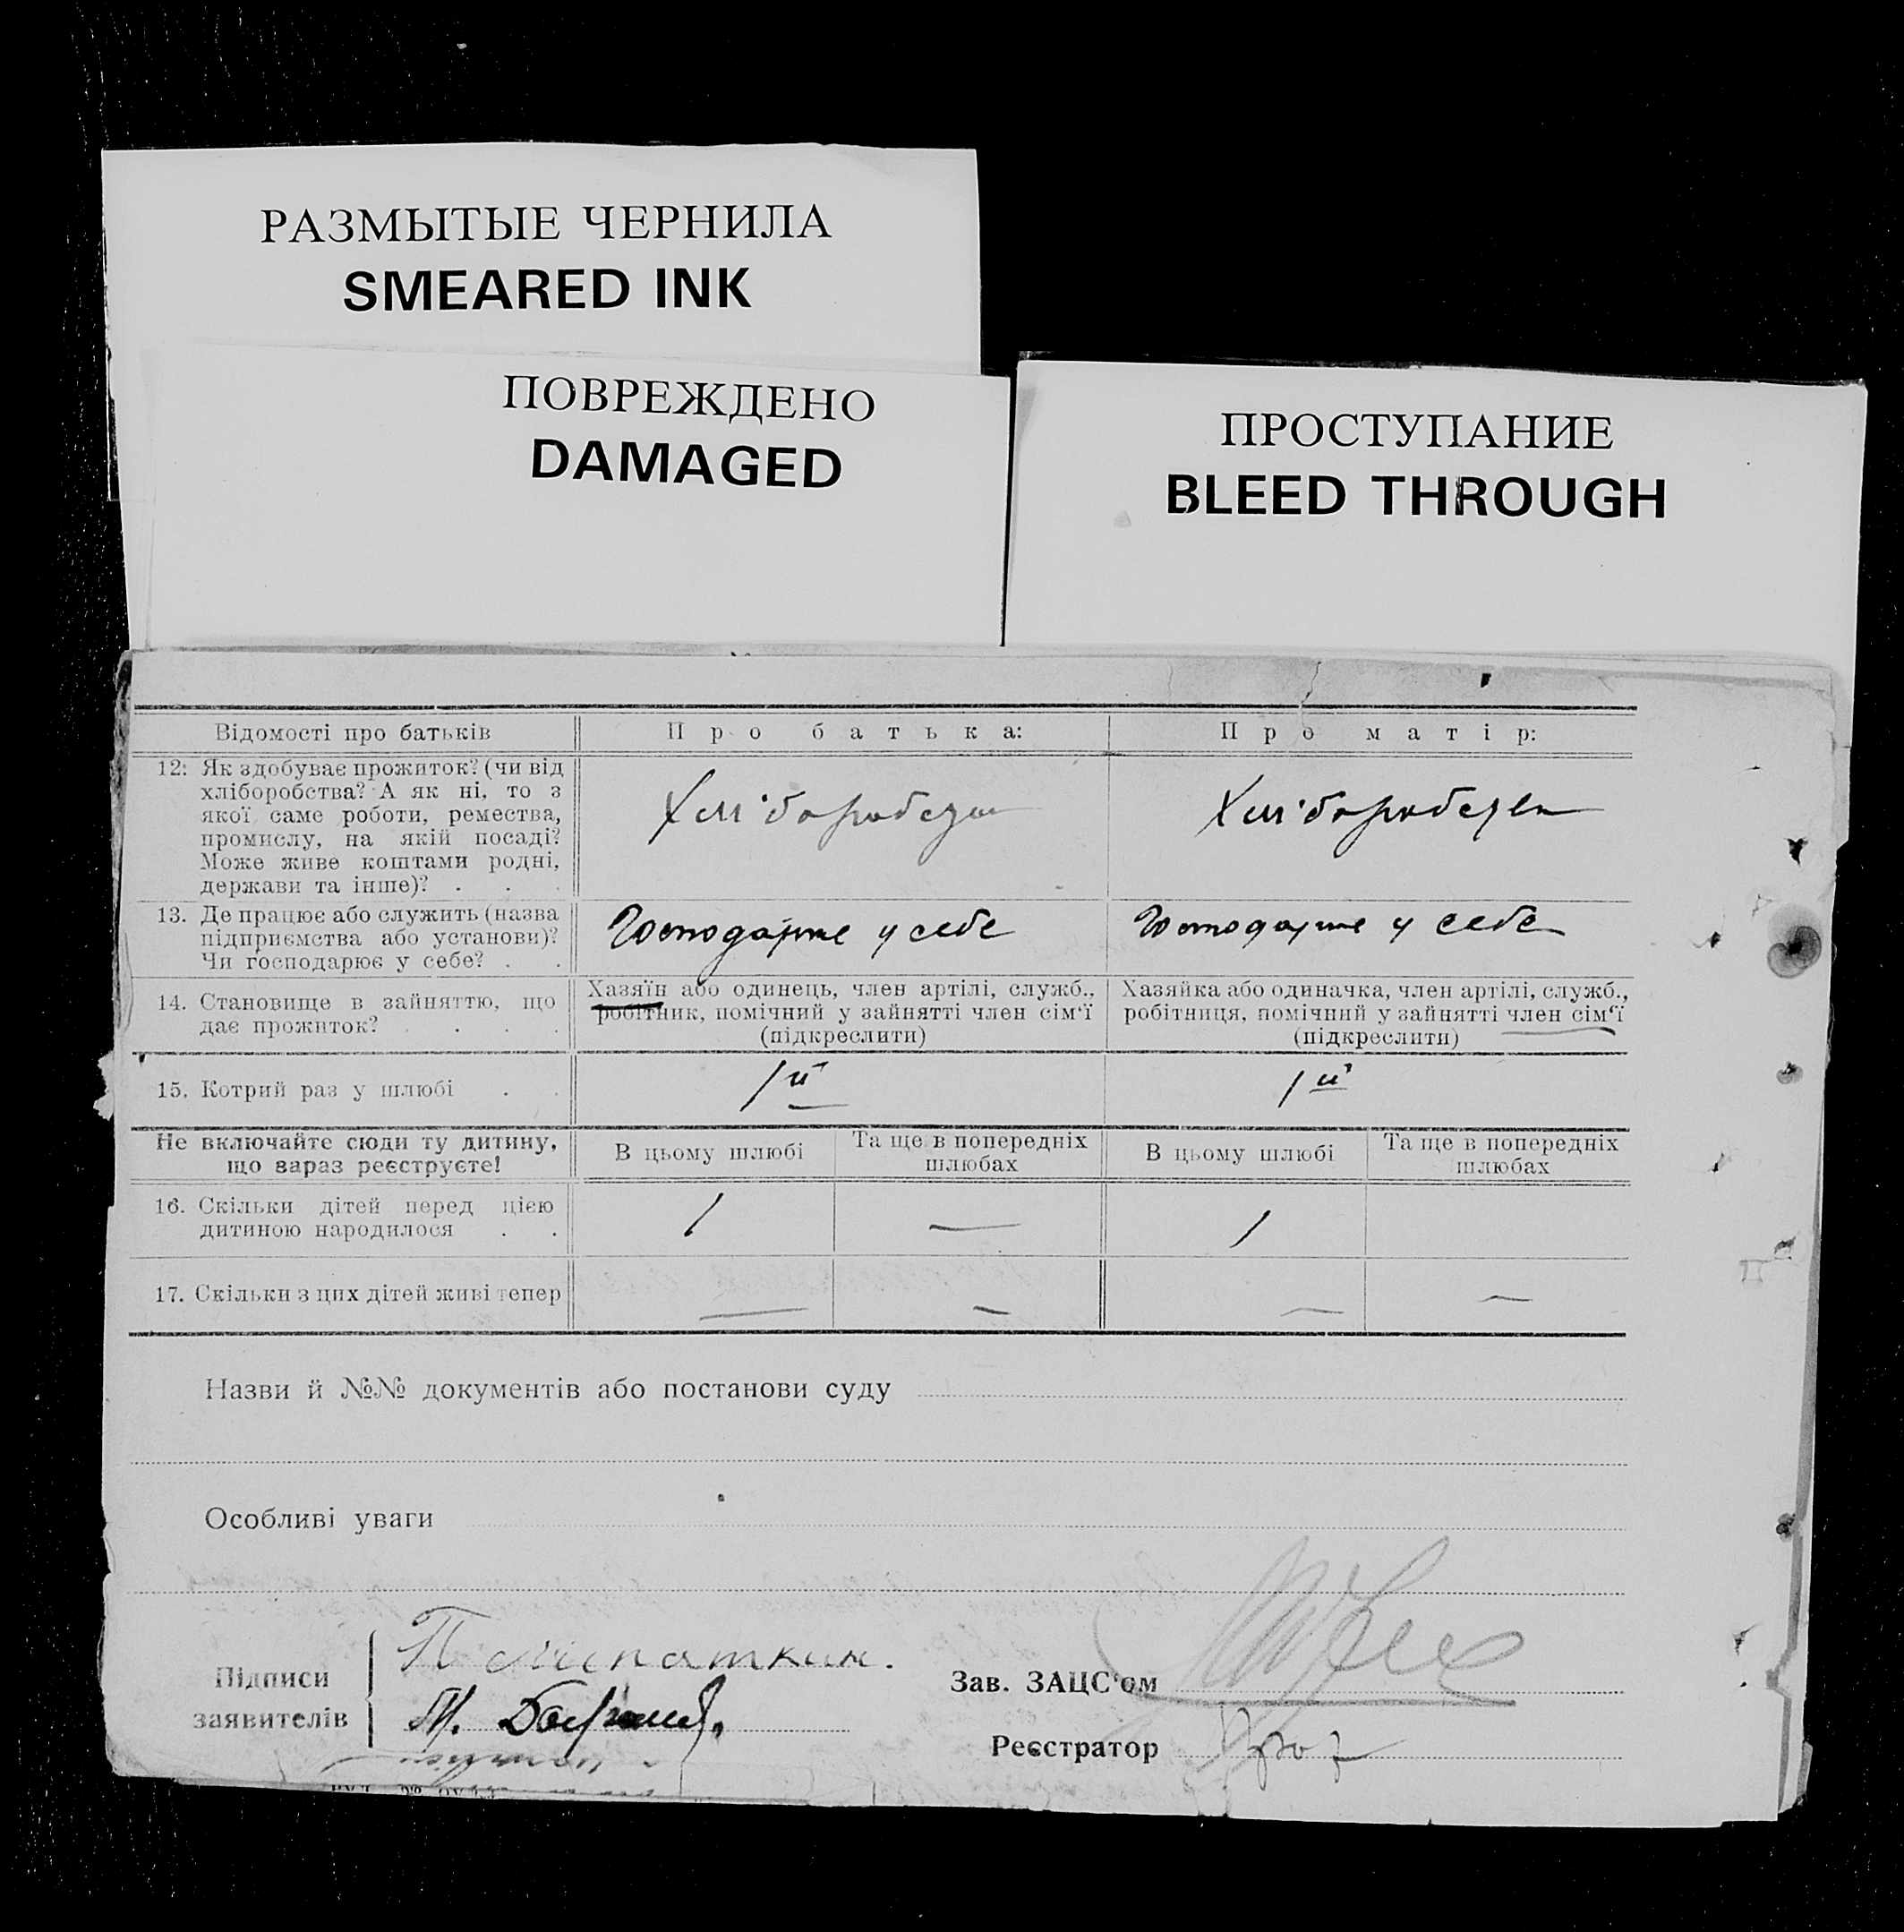 РАЗМЫТЫЕ ЧЕРНИЛА
SMEARED INK
ПОВРЕЖДЕНО
DAMAGED
ПРОСТУПАНИЕ
BLEED THROUGH
Відомості про батьків
Про батька:
Про матір:
12. Як здобуває прожиток? (чи від
хліборобства? А як ні, то з
якої саме роботи, ремества,
промислу, на якій посаді?
Може живе коштами родні,
держави та інше)? . . .
13. Де працює або служить (назва
підприємства або установи)?
Чи господарює у себе? . .
Господарює у себе
Господарює у себе
14. Становище в зайняттю, що
дає прожиток? . . . .
Хазяїн або одинець, член артілі, служб.,
робітник, помічний у зайнятті член сім'ї
(підкреслити)
Хазяйка або одиначка, член артілі, служб.,
робітниця, помічний у зайнятті член сім'ї
(підкреслити)
15. Котрий раз у шлюбі . .
1й
1й
Не включайте сюди ту дитину,
що зараз реєструєте!
В цьому шлюбі
Та ще в попередніх
шлюбах
В цьому шлюбі
Та ще в попередніх
шлюбах
16. Скільки дітей перед цією
дитиною народилося . .
1
—
1
17. Скільки з цих дітей живі тепер
—
—
—
—
Назви й №№ документів або постанови суду
Особливі уваги
Підписи
заявителів
Зав. ЗАЦС'ом
Реєстратор